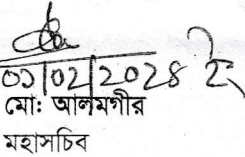 ০১/০২/২০২৪ ইং
মো: আলমগীর
মহাসচিব